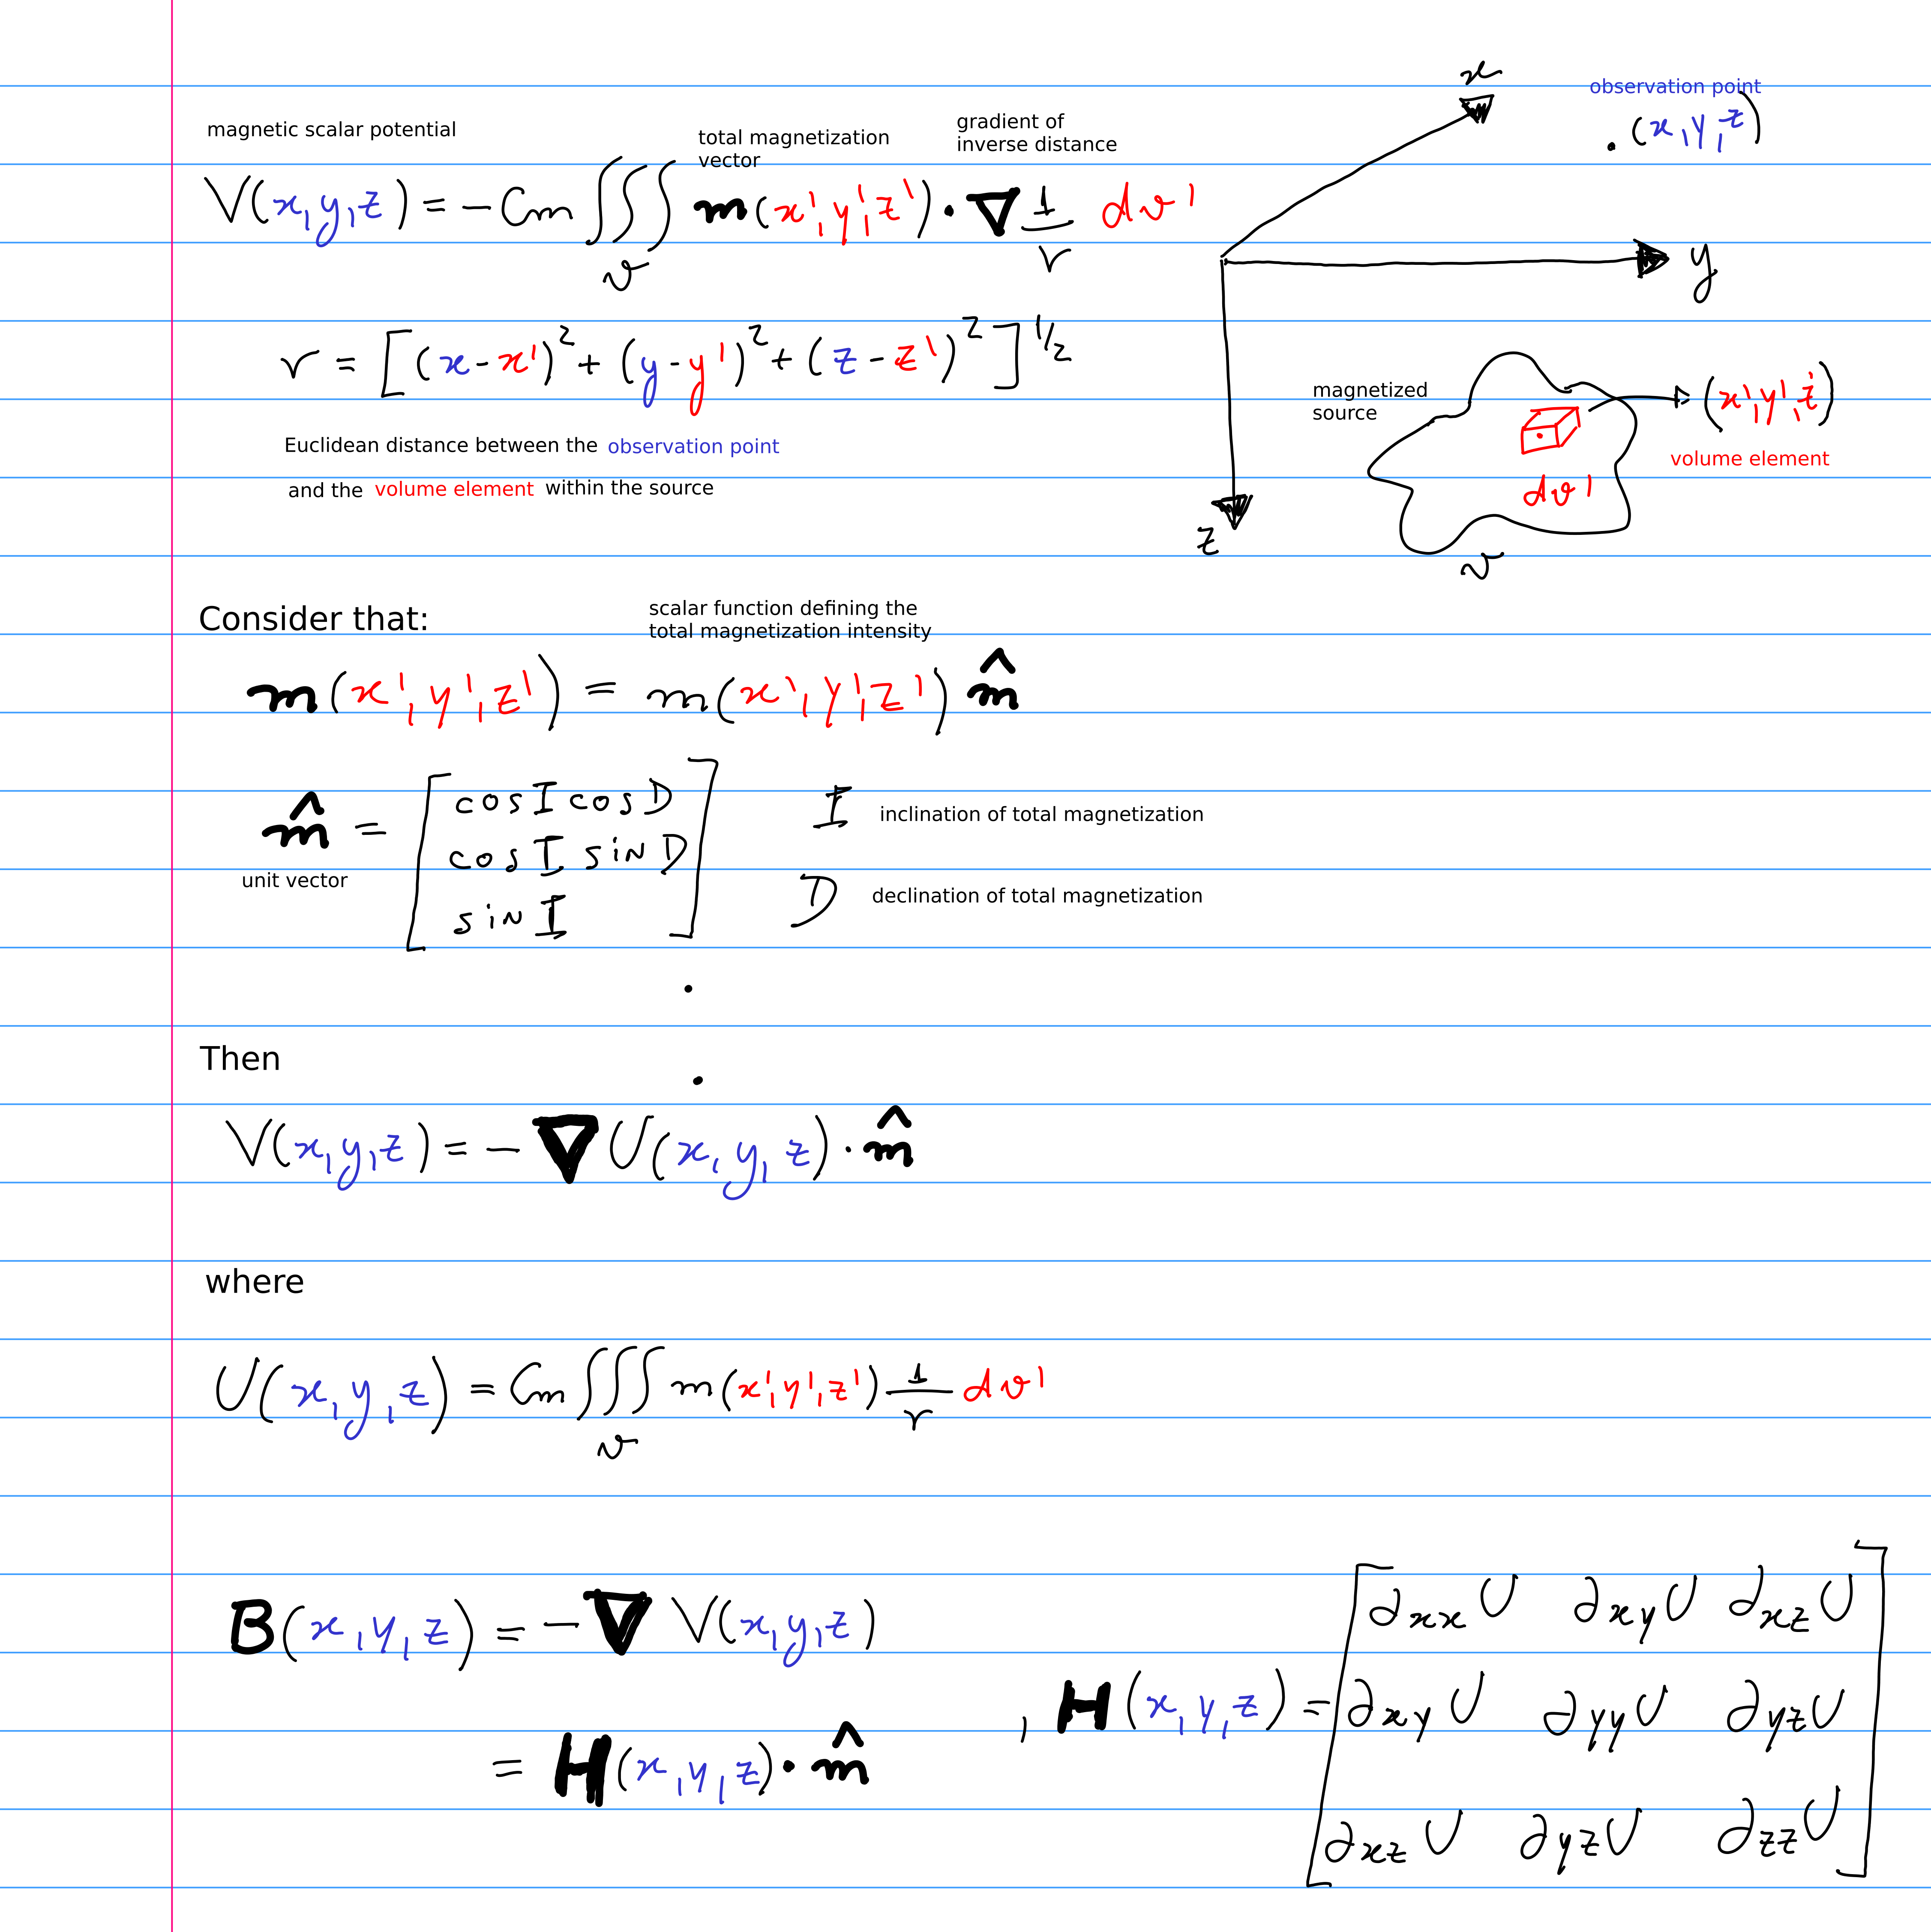 magnetic scalar potential
total magnetization
vector
gradient of
inverse distance
V(x,y,z) = - Cm ∭ m(x',y',z') · ∇ 1/r dv'
v
r = [(x-x')² + (y-y')² + (z-z')²]^1/2
Euclidean distance between the observation point
and the volume element within the source
x
observation point
. (x,y,z)
y
z
magnetized
source
(x',y',z')
volume element
dv'
v
Consider that:
scalar function defining the
total magnetization intensity
m(x',y',z') = m(x',y',z') m̂
m̂ = [cos I cos D
cos I sin D
sin I]
unit vector
I inclination of total magnetization
D declination of total magnetization
.
Then
.
V(x,y,z) = - ∇ U(x,y,z) · m̂
where
U(x,y,z) = Cm ∭ m(x',y',z') 1/r dv'
v
B(x,y,z) = - ∇ V(x,y,z)
= H(x,y,z) · m̂
, H(x,y,z) = [∂xx U ∂xy U ∂xz U
∂xy U ∂yy U ∂yz U
∂xz U ∂yz U ∂zz U]